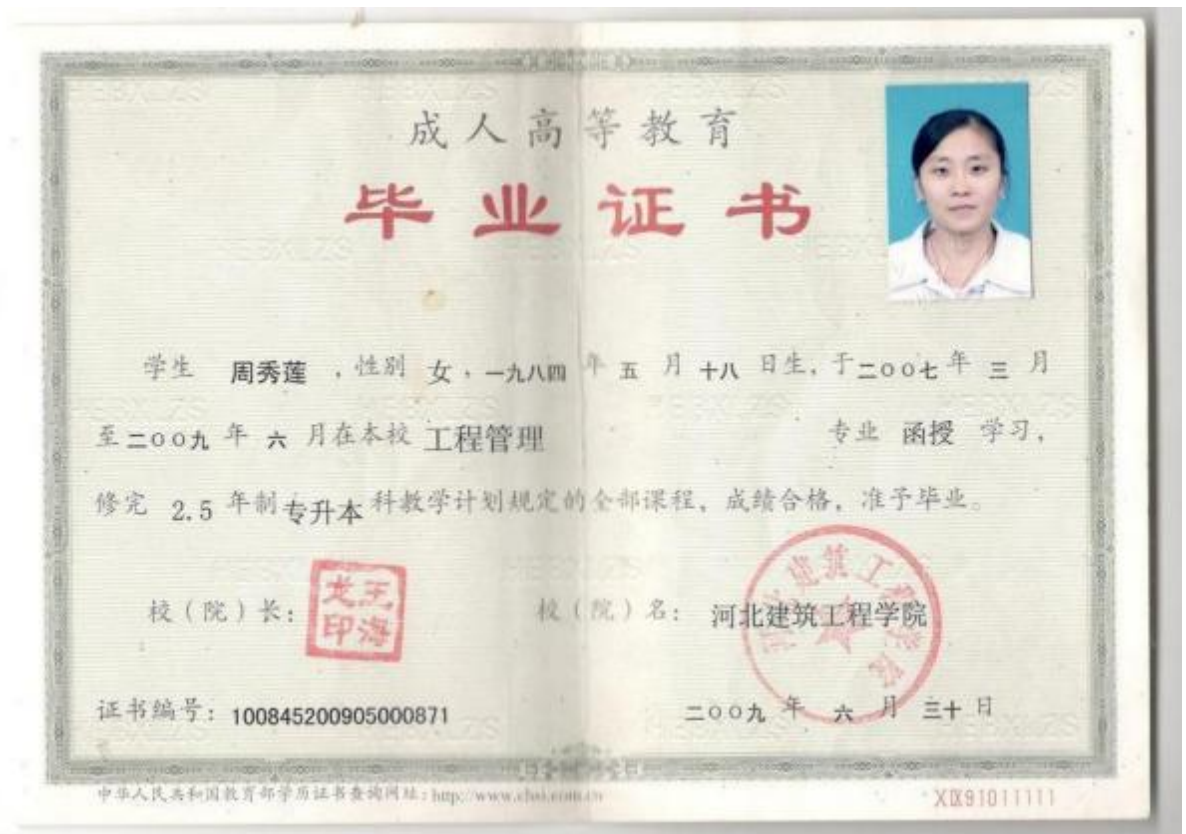 成人高等教育
毕业证书
学生 周秀莲 ,性别 女,一九八四 年 五 月 十八 日生,于二〇〇七年 三 月
至二〇〇九 年 六 月在本校 工程管理 专业 函授 学习,
修完 2.5 年制 专升本 科教学计划规定的全部课程,成绩合格,准予毕业。
校(院)长: 王海龙印 校(院)名: 河北建筑工程学院
河北建筑工程学院
证书编号: 100845200905000871 二〇〇九 年 六 月 三十 日
中华人民共和国教育部学历证书查询网址:http://www.chsi.com.cn XIX91011111